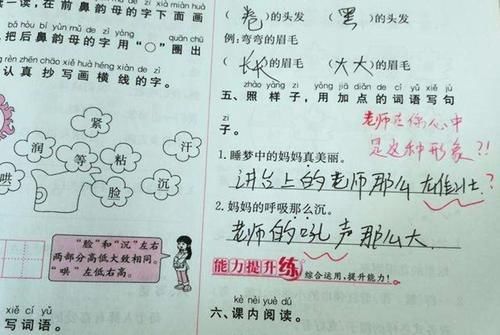 一读,在前鼻韵母的字下面画
bǎ hòu bí yùn mǔ de zì yòng quān chū
,把后鼻韵母的字用"○"圈出
rèn zhēn chāo xiě huà héng xiàn de zì
认真抄写画横线的字。
紧
润
汗
等
粘
哄
脸
沉
"脸"和"沉"左右
两部分高低大致相同。
"哄"左低右高。
xiě cí yǔ
写词语。
(卷)的头发 (黑)的头发
例:弯弯的眉毛
(长长)的眉毛 (大大)的眉毛
zhào yàng zi yòng jiā diǎn de cí yǔ xiě jù
五、照样子,用加点的词语写句
zi
子。
老师在你心中
是这种形象?!
1.睡梦中的妈妈真美丽。
讲台上的老师那么雄壮?
2.妈妈的呼吸那么沉。
老师的吼声那么大
能力提升练 综合运用,提升能力!
kè nèi yuè dú
六、课内阅读。